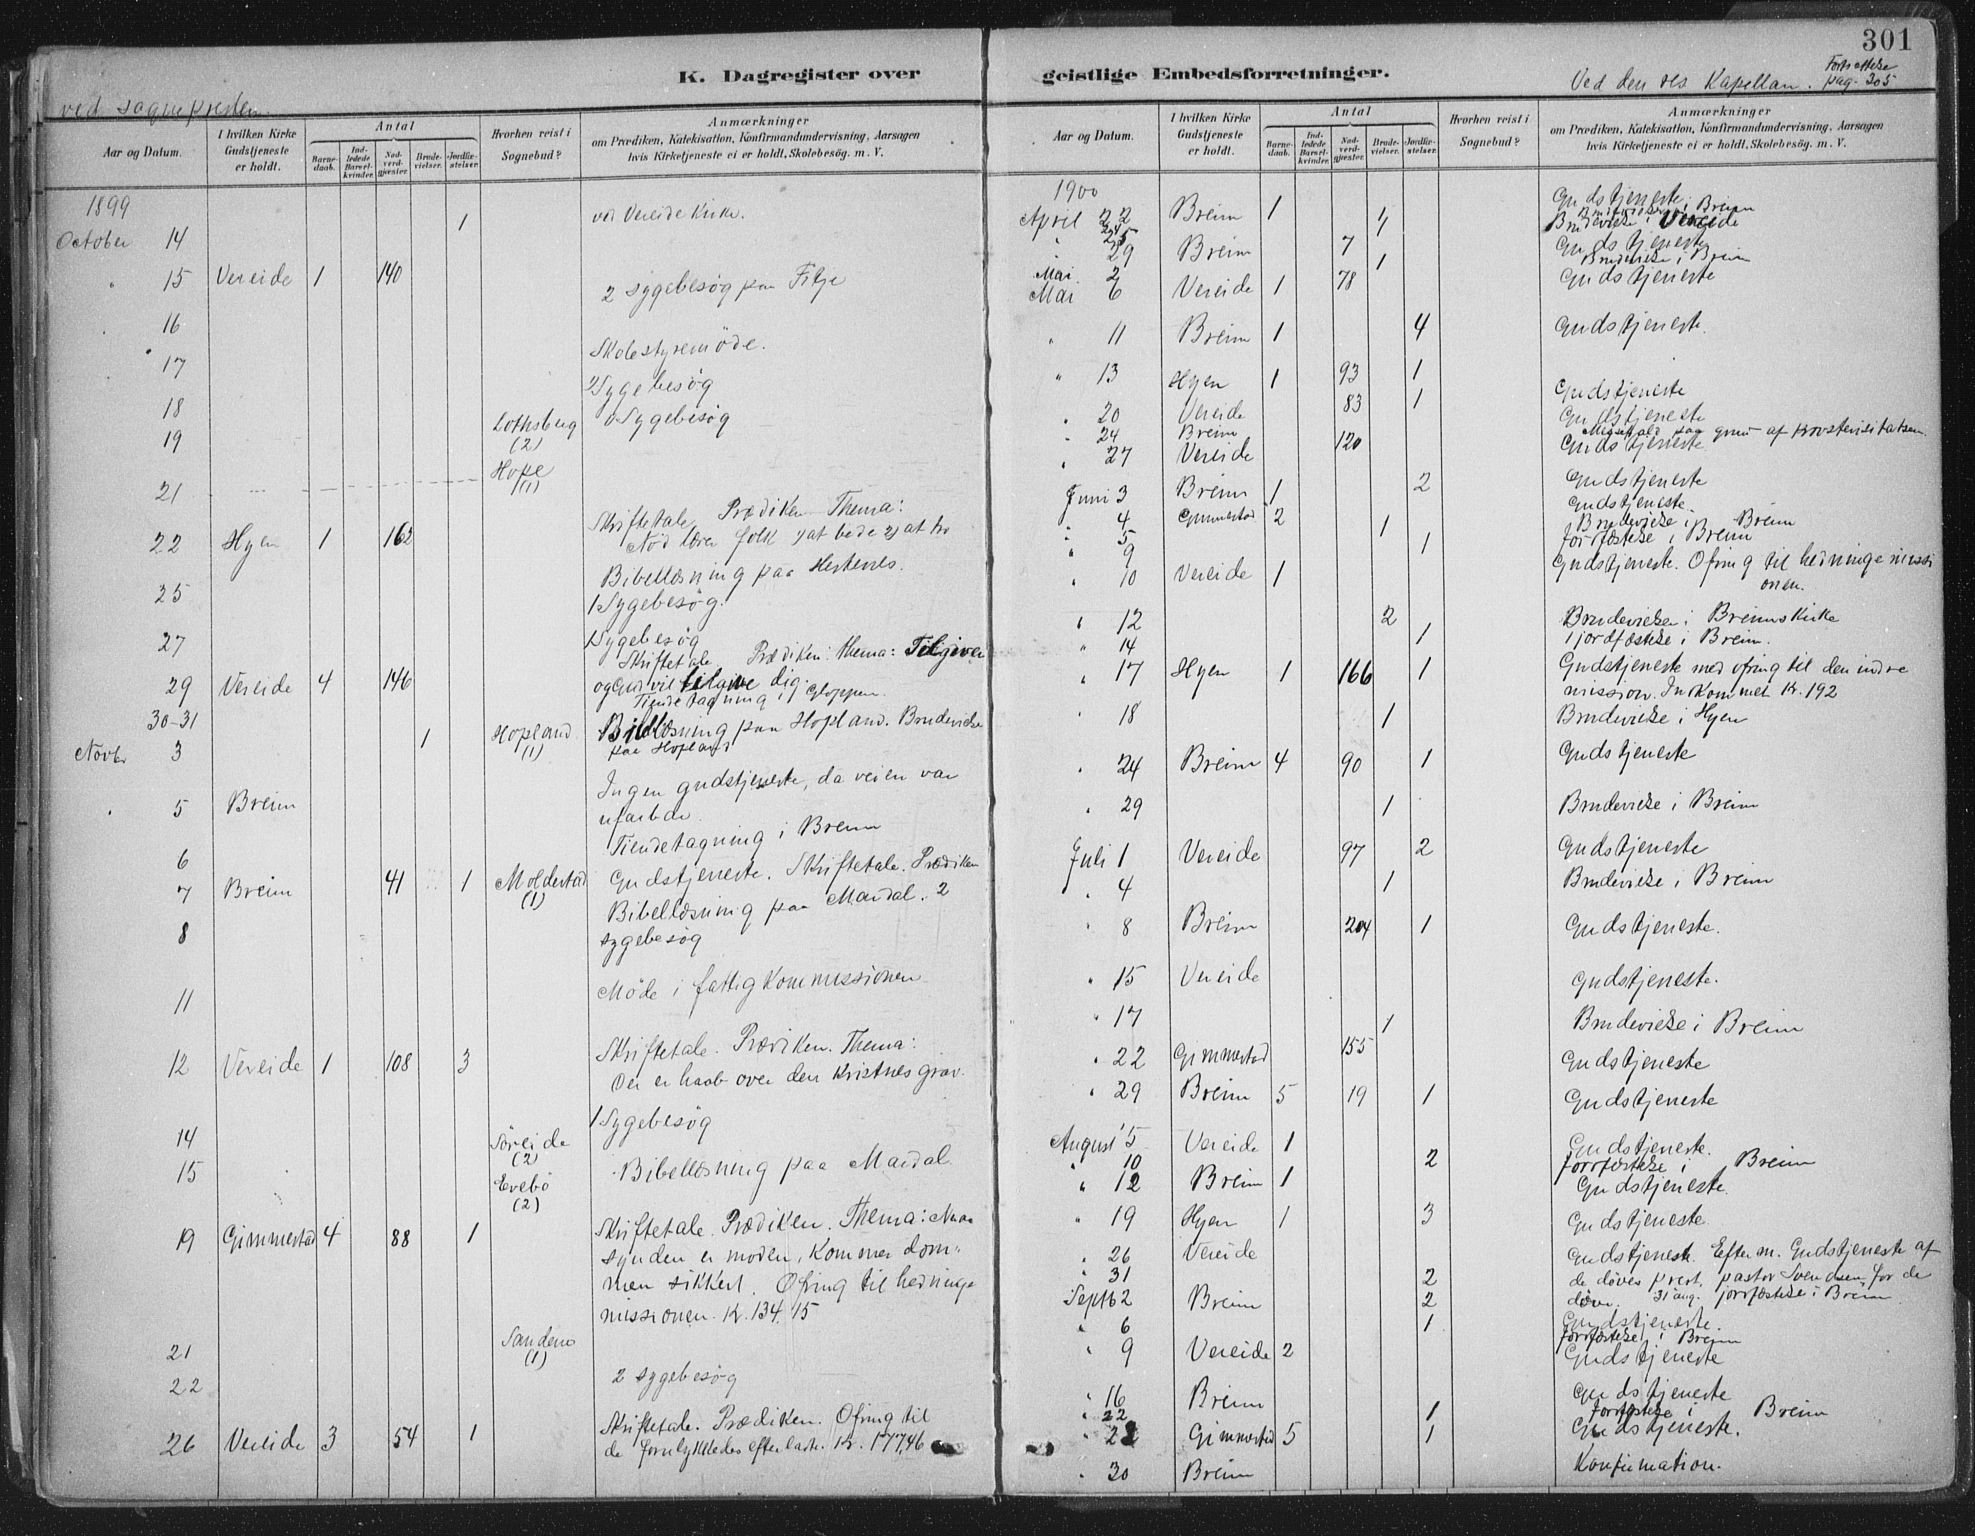 301
K. Dagregister over geistlige Embedsforretninger.
ved sognepresten.
Ved den res Kapellan. Fortsættelse
pag. 305
Aar og Datum. I hvilken Kirke Gudstjeneste er holdt. Antal Barnedaab. Indledede Barselkvinder. Nadverdgjæster. Brudevielser. Jordfæstelser. Hvorhen reist i Sognebud? Anmærkninger om Prædiken, Katekisation, Konfirmandundervisning, Aarsagen hvis Kirketjeneste ei er holdt, Skolebesög. m. V.
1899
October 14 1 ved Vereide Kirke.
" 15 Vereide 1 140
16 2 sygebesøg paa Fitje
17 Skolestyremøde.
18 2 Sygebesøg
19 Lothsberg (2) Sygebesøg
21 Hope (1)
22 Hyen 1 162 Skriftetale Prædiken Thema:
Nød lærer folk 1) at bede 2) at tro
25 Bibellæsning paa Hestenes.
1 Sygebesøg.
27 1 Sygebesøg
29 Vereide 4 146 Skriftetale Prædiken: Thema: Tilgiver
og Gud vil tilgive dig.
30-31 Tiendetagning i Gloppen.
Novbr 3 1 Hopland (1) Bibellæsning paa Hopland. Brudevielse
paa Hopland
" 5 Breim Ingen gudstjeneste, da veien var
ufarbar.
6 Tiendetagning i Breim
7 Breim 41 1 Moldestad (1) Gudstjeneste. Skriftetale. Prædiken
8 Bibellæsning paa Mardal. 2
sygebesøg
11 Møde i fattigkommissionen
12 Vereide 1 108 3 Skriftetale. Prædiken. Thema:
Der er haab over den kristnes grav.
14 Søreide (2) 1 Sygebesøg
15 Evebø (2) Bibellæsning paa Mardal
19 Gimmestad 4 88 1 Skriftetale. Prædiken. Thema: Naar
synden er moden, kommer dom-
men sikkert. Ofring til hedninge
missionen. Kr. 134,15
21 Sandene (1)
22 2 sygebesøg
26 Vereide 3 54 1 Skriftetale. Prædiken. Ofring til
de forulykkedes efterladte. Kr. 177,46
Aar og Datum. I hvilken Kirke Gudstjeneste er holdt. Antal Barnedaab. Indledede Barselkvinder. Nadverdgjæster. Brudevielser. Jordfæstelser. Hvorhen reist i Sognebud? Anmærkninger om Prædiken, Katekisation, Konfirmandundervisning, Aarsagen hvis Kirketjeneste ei er holdt, Skolebesög. m. V.
1900
April 22 Breim 1 Gudstjeneste
25 1 Brudevielse i Vereide
" 29 Breim 7 Gudstjeneste
Mai 2 1 Brudevielse i Breim
Mai 6 Vereide 1 78 Gudstjeneste
" 11 Breim 1 4 Gudstjeneste.
" 13 Hyen 1 93 1 Gudstjeneste
" 20 Vereide 83 1 Gudstjeneste
" 24 Breim Messefald paa grund af Provstevisitatsen
" 27 Vereide 120 Gudstjeneste
Juni 3 Breim 1 2 Gudstjeneste
" 4 Gimmestad 2 Gudstjeneste.
" 5 1 Brudevielse i Breim
" 9 1 Jordfæstelse i Breim
" 10 Vereide 1 Gudstjeneste. Ofring til hedningemissi
onen.
" 12 2 Brudevielser i Breims Kirke
" 14 1 1 jordfæstelse i Breim.
" 17 Hyen 1 166 1 Gudstjeneste med ofring til den indre
mission. Indkommet Kr. 192
" 18 1 Brudevielse i Hyen
" 24 Breim 4 90 1 Gudstjeneste
" 29 1 Brudevielse i Breim
Juli 1 Vereide 97 2 Gudstjeneste
" 4 1 Brudevielse i Breim
" 8 Breim 204 1 Gudstjeneste.
" 15 Vereide Gudstjeneste.
" 17 1 Brudevielse i Breim
" 22 Gimmestad 155 Gudstjeneste
" 29 Breim 5 19 1 Gudstjeneste
August 5 Vereide 1 Gudstjeneste.
" 10 2 Jordfæstelse i Breim
" 12 Breim 1 Gudstjeneste.
" 19 Hyen 1 3 Gudstjeneste
" 26 Vereide Gudstjeneste. Efterm. Gudstjeneste af
de døves prest, pastor Svendsen for de
" 31 2 døve. 31 aug. jordfæstelse i Breim
Septb 2 Breim 2 Gudstjeneste.
" 6 1 Jordfæstelse i Breim
" 9 Vereide 2 Gudstjeneste
" 16 Breim Gudstjeneste
" 22 1 Jordfæstelse i Breim
" 23 Gimmestad 5 1 Gudstjeneste.
" 30 Breim Konfirmation.